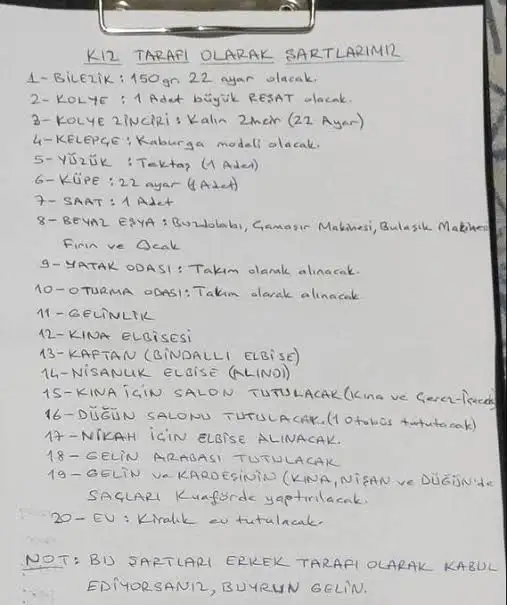 KIZ TARAFI OLARAK ŞARTLARIMIZ
1- BİLEZİK : 150 gr. 22 ayar olacak.
2- KOLYE : 1 Adet büyük REŞAT olacak.
3- KOLYE ZİNCİRİ : Kalın 2metr (22 Ayar)
4- KELEPÇE : Kaburga modeli olacak.
5- YÜZÜK : Tektaş (1 Adet)
6- KÜPE : 22 ayar (1 Adet)
7- SAAT : 1 Adet
8- BEYAZ EŞYA : Buzdolabı, Çamaşır Makinesi, Bulaşık Makines
Fırın ve Ocak
9- YATAK ODASI : Takım olarak alınacak.
10- OTURMA ODASI : Takım olarak alınacak
11- GELİNLİK
12- KINA ELBİSESİ
13- KAFTAN (BİNDALLI ELBİSE)
14- NİŞANLIK ELBİSE (ALINDI)
15- KINA İÇİN SALON TUTULACAK (Kına ve Çerez-İçecek)
16- DÜĞÜN SALONU TUTULACAK. (1 Otobüs tutulacak)
17- NİKAH İÇİN ELBİSE ALINACAK.
18- GELİN ARABASI TUTULACAK
19- GELİN ve KARDEŞİNİN (KINA, NİŞAN ve DÜĞÜN'de
SAÇLARI Kuaförde yaptırılacak.
20- EV : Kiralık ev tutulacak.
NOT : BU ŞARTLARI ERKEK TARAFI OLARAK KABUL
EDİYORSANIZ, BUYRUN GELİN.